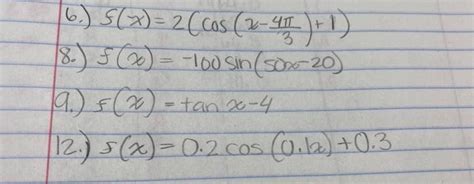 6.) f(x) = 2(cos(x - 4π/3) + 1)
8.) f(x) = -100 sin(50x - 20)
9.) f(x) = tan x - 4
12.) f(x) = 0.2 cos(0.1x) + 0.3